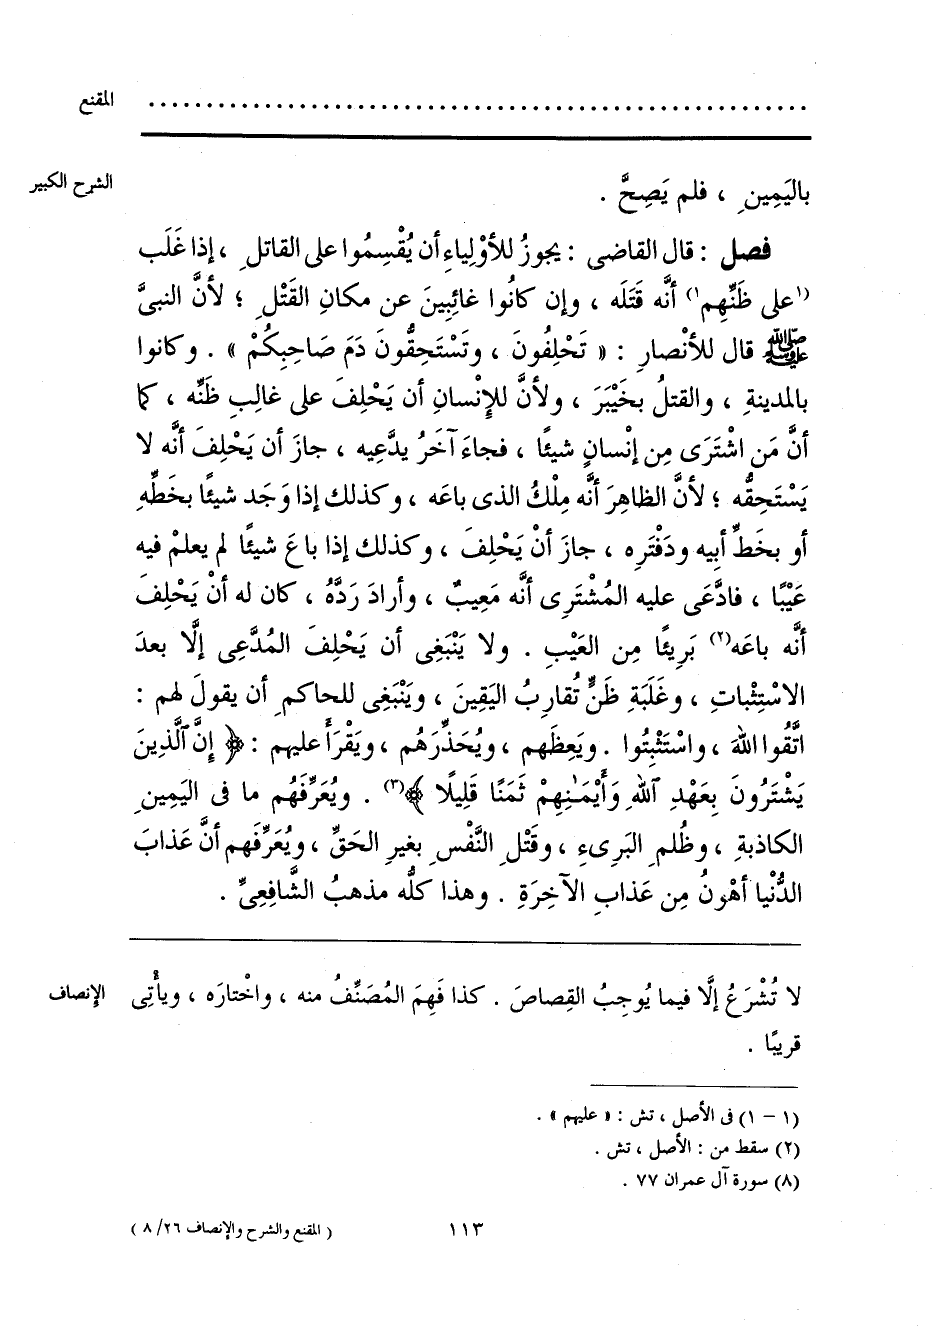 المقنع ........................................................
الشرح الكبير
باليَمِينِ ، فلم يَصِحَّ .
فصل : قال القاضى : يجوزُ للأوْلِياءِ أن يُقْسِمُوا على القاتلِ ، إذا غَلَب
(١على ظَنِّهم١) أنَّه قَتَلَه ، وإن كانُوا غائِبِينَ عن مكانِ القَتْلِ ؛ لأنَّ النبىَّ
ﷺ قال للأنْصارِ : « تَحْلِفُونَ ، وتَسْتَحِقُّونَ دَمَ صَاحِبِكُمْ » . وكانوا
بالمدينةِ ، والقتلُ بخَيْبَرَ ، ولأنَّ للإنْسانِ أن يَحْلِفَ على غالِبِ ظَنِّه ، كما
أنَّ مَن اشْتَرَى مِن إنْسانٍ شيئًا ، فجاءَ آخَرُ يدَّعِيه ، جازَ أن يَحْلِفَ أنَّه لا
يَسْتَحِقُّه ؛ لأنَّ الظاهِرَ أنَّه مِلْكُ الذى باعَه ، وكذلك إذا وَجَد شيئًا بخَطِّه
أو بخَطِّ أبيه ودَفْتَرِه ، جازَ أنْ يَحْلِفَ ، وكذلك إذا باعَ شيئًا لم يعلمْ فيه
عَيْبًا ، فادَّعَى عليه المُشْتَرِى أنَّه مَعِيبٌ ، وأرادَ رَدَّهُ ، كان له أنْ يَحْلِفَ
أنَّه باعَه(٢) بَرِيئًا مِن العَيْبِ . ولا يَنْبَغِى أن يَحْلِفَ المُدَّعِى إلَّا بعدَ
الاسْتِثْباتِ ، وغَلَبَةِ ظَنٍّ تُقارِبُ اليَقِينَ ، ويَنْبَغِى للحاكمِ أن يقولَ لهم :
اتَّقُوا اللهَ ، واسْتَثْبِتُوا . ويَعِظَهم ، ويُحَذِّرَهُم ، ويَقْرَأ عليهم : ﴿ إِنَّ ٱلَّذِينَ
يَشْتَرُونَ بِعَهْدِ ٱللهِ وَأَيْمَـٰنِهِمْ ثَمَنًا قَلِيلًا ﴾(٣) . ويُعَرِّفَهُم ما فى اليَمِينِ
الكاذبةِ ، وظُلمِ البَرِىءِ ، وقَتْلِ النَّفْسِ بغيرِ الحَقِّ ، ويُعَرِّفَهم أنَّ عَذابَ
الدُّنْيا أهْونُ مِن عَذابِ الآخِرَةِ . وهذا كلُّه مذهبُ الشَّافِعِىِّ .
لا تُشْرَعُ إلَّا فيما يُوجِبُ القِصاصَ . كذا فَهِمَ المُصَنِّفُ منه ، واخْتارَه ، ويأْتِى
الإنصاف
قريبًا .
(١ – ١) فى الأصل ، تش : « عليهم » .
(٢) سقط من : الأصل ، تش .
(٨) سورة آل عمران ٧٧ .
١١٣ ( المقنع والشرح والإنصاف ٢٦ / ٨ )